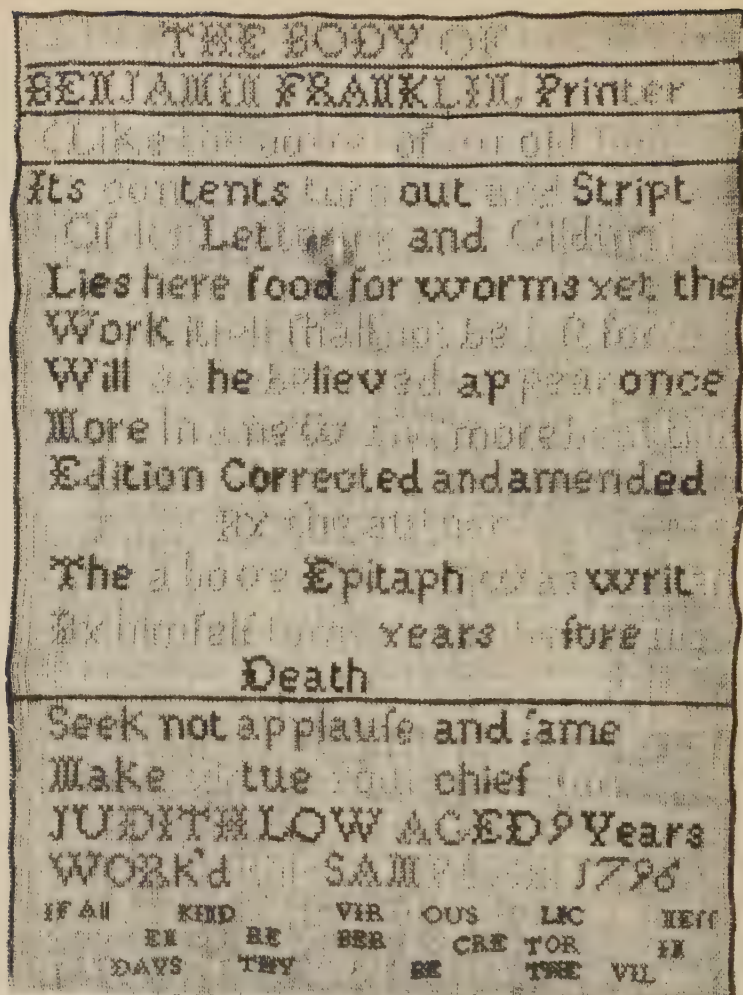 THE BODY OF
BENJAMIN FRANKLIN, Printer
(Like the of an old
Its contents turn out and Stript
Of its Lettering and Gilding
Lies here food for worms yet the
Work itself ſhall not be loſt for
Will as he believed appear once
More in a new and more beautiful
Edition Corrected and amended
By the author
The above Epitaph was writ
By himſelf years before
Death
Seek not applauſe and fame
Make virtue your chief
JUDITH LOW AGED 9 Years
WORK'd SAMPLER 1796
IF All KIND VIR OUS LIC NEſſ
EN RE BER CRE TOR IN
DAYS THY BE THE VIL